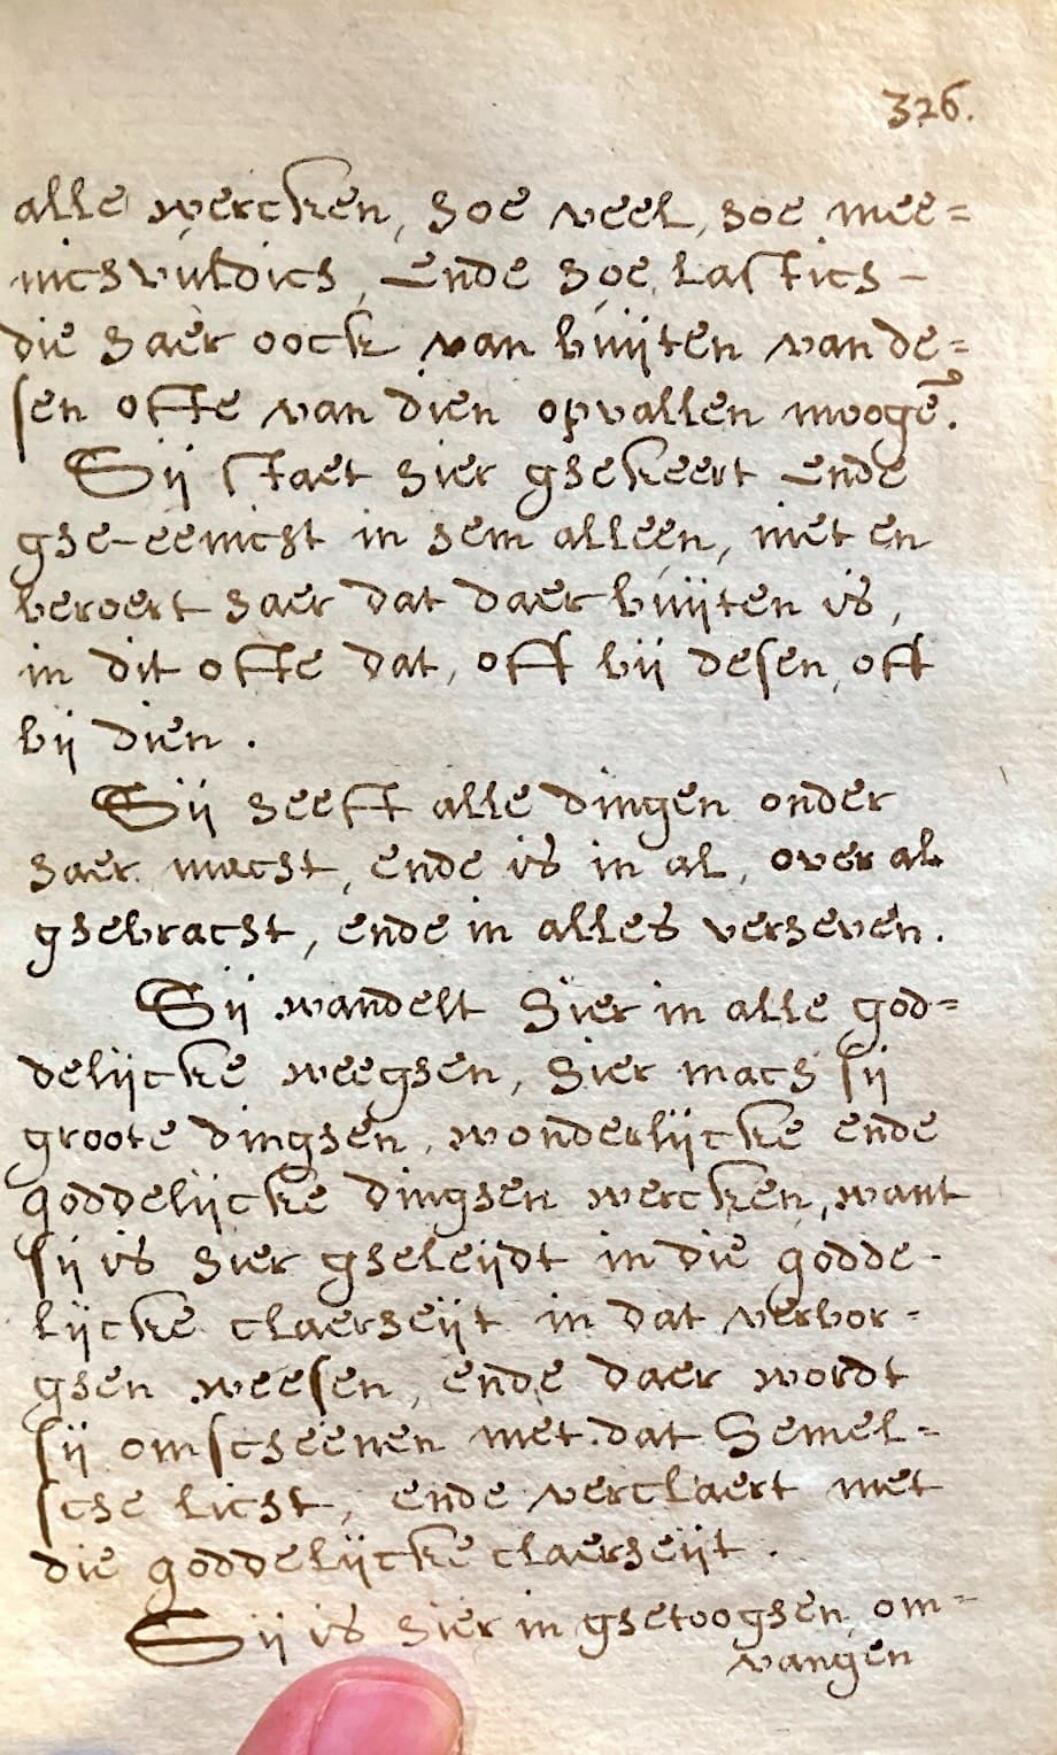 326.
alle wercken, hoe veel, hoe mee=
nichvuldich, ende hoe lastich -
die haer oock van buijten van de=
sen ofte van dien opvallen moogē.
Sij staet hier ghekeert ende
ghe-eenicht in hem alleen, niet en
beroert haer dat daer buijten is,
in dit ofte dat, oft bij desen, oft
bij dien.
Sij heeft alle dingen onder
haer macht, ende is in al, over al
ghebracht, ende in alles verheven.
Sij wandelt hier in alle god=
delijcke weeghen, hier mach sij
groote dinghen, wonderlijcke ende
goddelijcke dinghen wercken, want
sij is hier gheleijdt in die godde-
lijcke claerheijt in dat verbor=
ghen weesen, ende daer wordt
sij omscheenen met dat hemel=
sche licht, ende verclaert met
die goddelijcke claerheijt.
Sij is hier in ghetooghen, om=
vangen